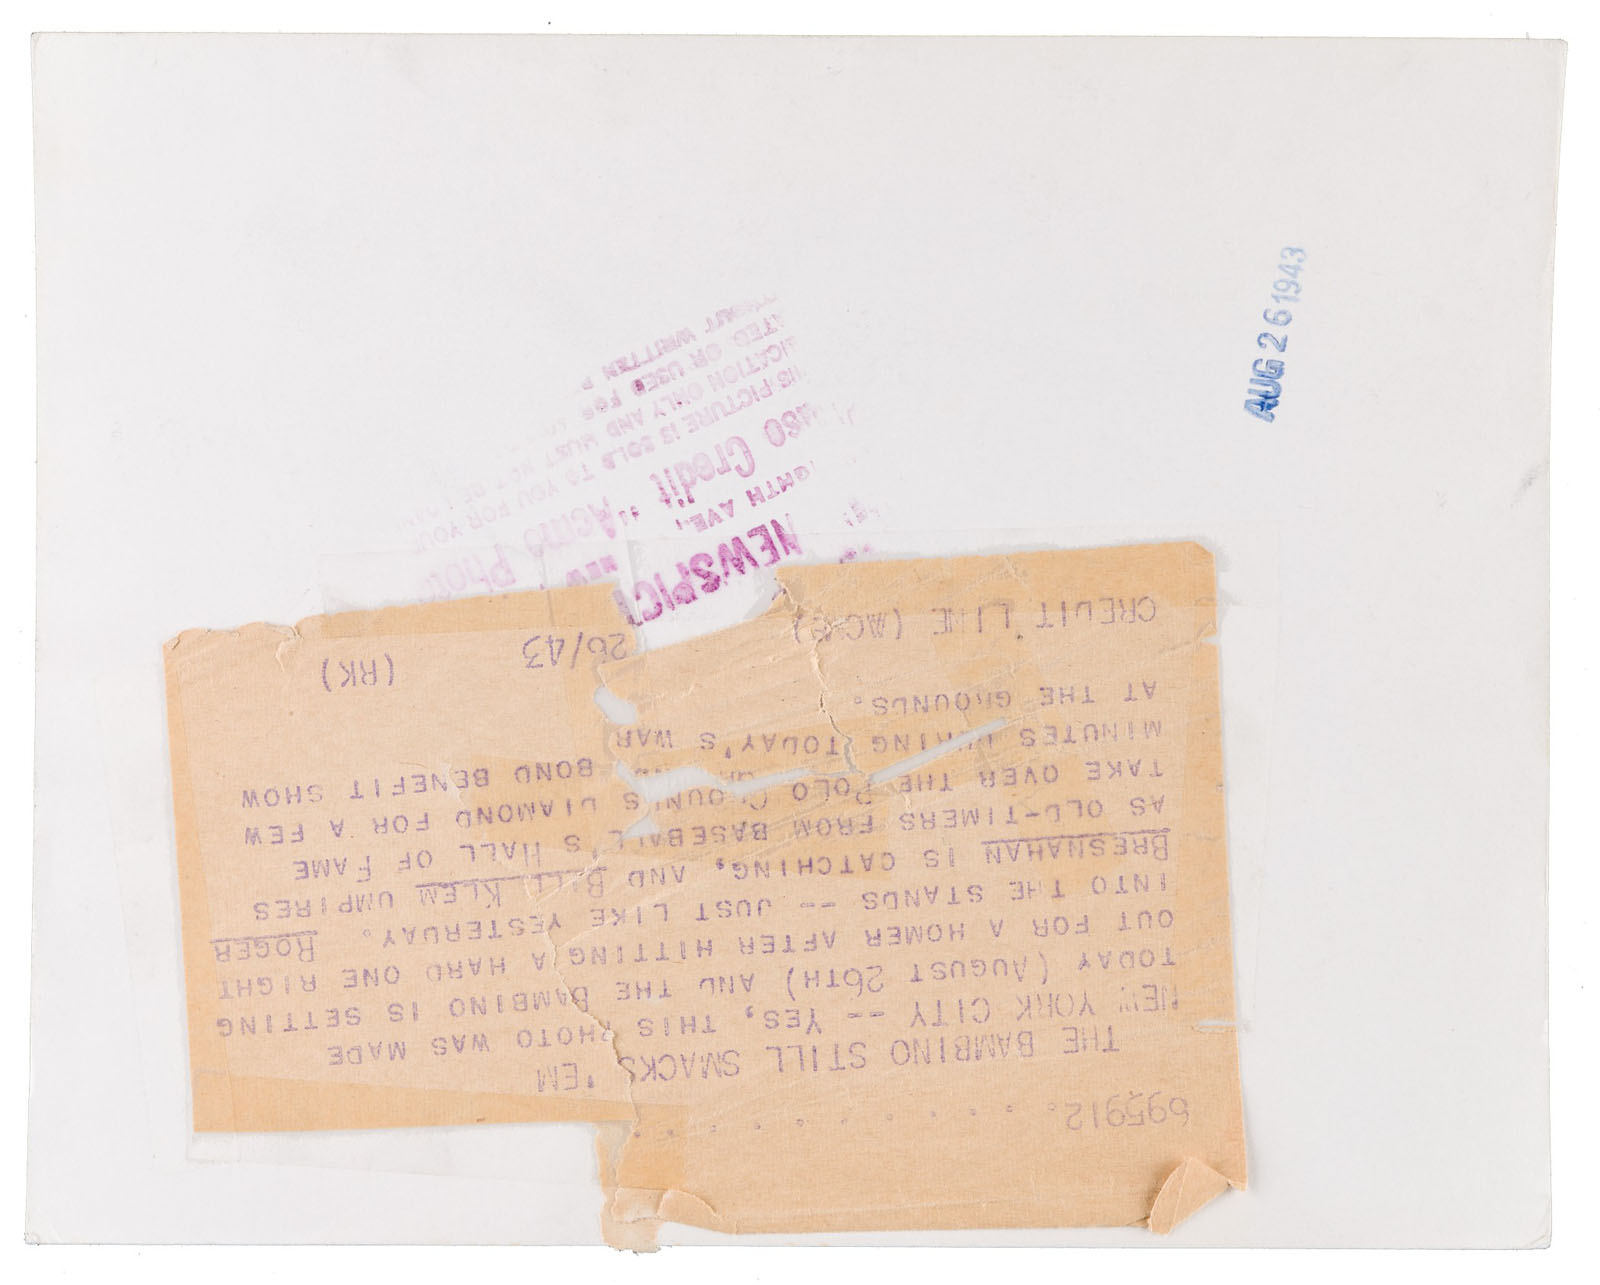 AUG 26 1943
695912. . . . . . . . . .
THE BAMBINO STILL SMACKS 'EM
NEW YORK CITY -- YES, THIS PHOTO WAS MADE
TODAY (AUGUST 26TH) AND THE BAMBINO IS SETTING
OUT FOR A HOMER AFTER HITTING A HARD ONE RIGHT
INTO THE STANDS -- JUST LIKE YESTERDAY. ROGER
BRESNAHAN IS CATCHING, AND BILL KLEM UMPIRES
AS OLD-TIMERS FROM BASEBALL'S HALL OF FAME
TAKE OVER THE POLO GROUNDS DIAMOND FOR A FEW
MINUTES DURING TODAY'S WAR BOND BENEFIT SHOW
AT THE GROUNDS.
CREDIT LINE (ACME) 26/43 (RK)
NEWSPICT
AVE., NEW
Credit "Acme Phot
PICTURE IS SOLD TO YOU FOR YOU
ONLY AND MUST NOT BE
OR USED FOR
WRITTEN